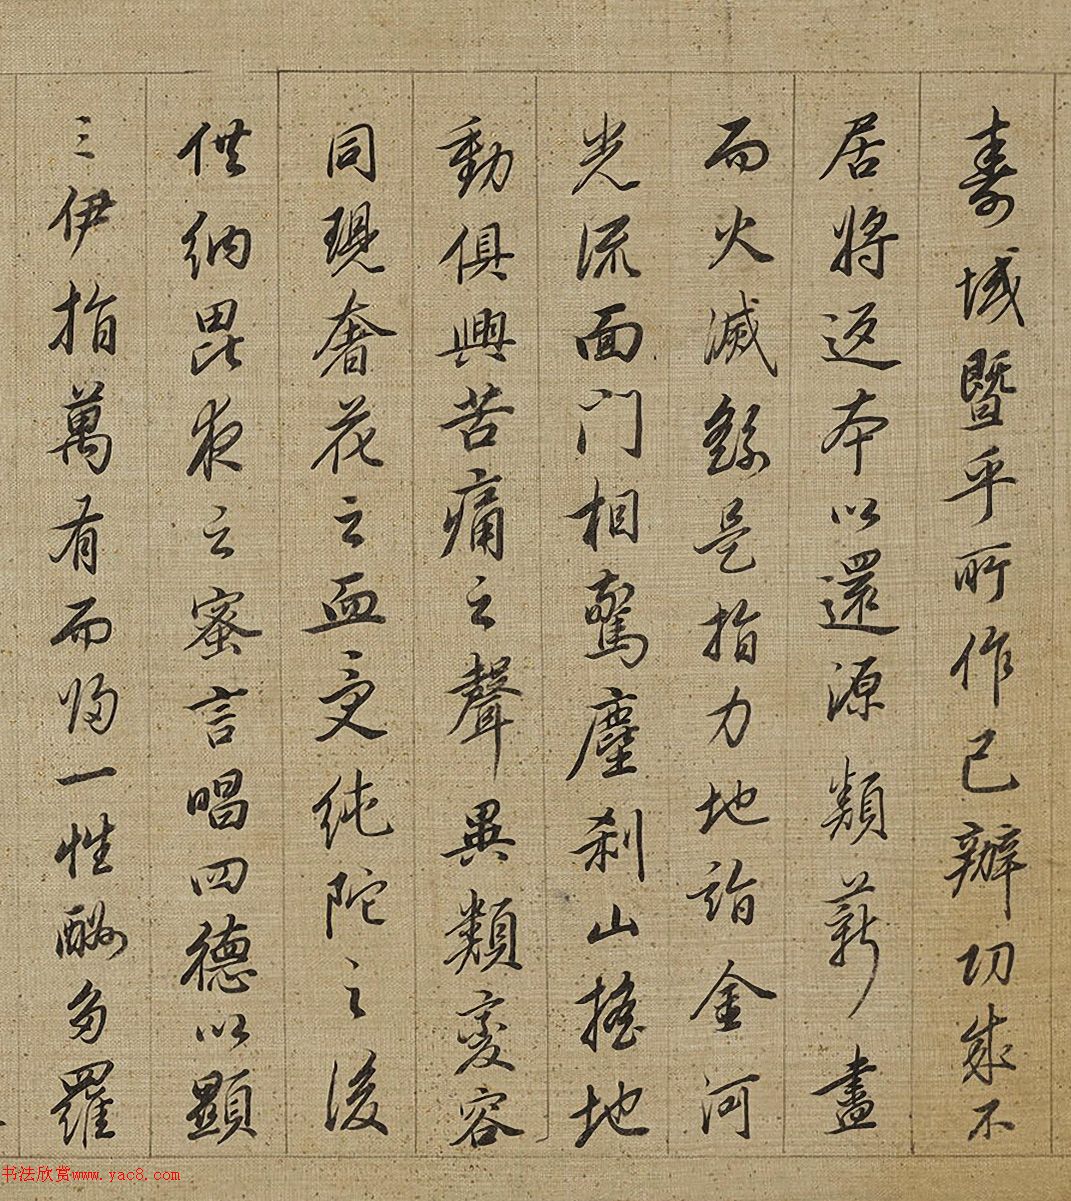 壽域暨乎所作已辦功成不
居將返本以還源類薪盡
而火滅繇是指力地詣金河
光流面門相驚塵剎山搖地
動俱興苦痛之聲異類變容
同現奢花之血受純陀之後
供納毘夜之蜜言唱四德以顯
三伊指萬有而歸一性酬多羅
书法欣赏www.yac8.com